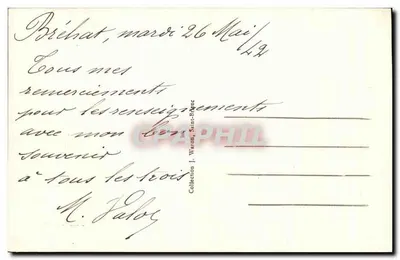 Bréhat, mardi 26 Mai/42
Tous mes
remerciements
pour les renseignements
avec mon bon
souvenir
à tous les trois
M.
Collection J. Waron, Saint-Brieuc
CPAPHIL